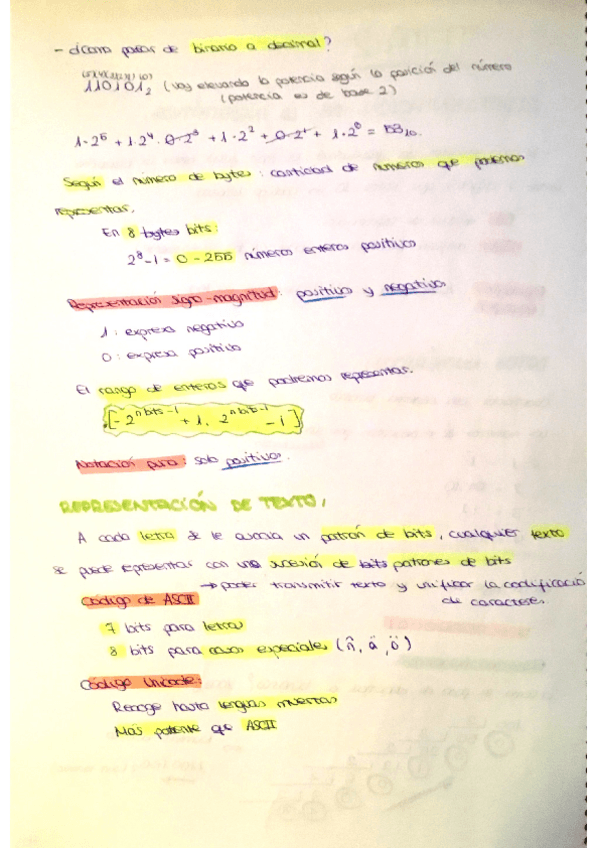 - ¿Cómo pasar de binario a decimal?
110101₂ (voy elevando la potencia según la posición del número
(potencia es de base 2)
1·2⁵ + 1·2⁴ · 0·2³ + 1·2² + 0·2¹ + 1·2⁰ = 53₁₀.
Según el número de bytes: cantidad de números que podemos
representar.
En 8 bytes bits:
2⁸-1 = 0 - 255 números enteros positivos
Representación signo-magnitud: positivos y negativos
1: expresa negativo
0: expresa positivo
El rango de enteros que podremos representar.
[-2ⁿ ᵇⁱᵗˢ⁻¹ + 1, 2ⁿ ᵇⁱᵗˢ⁻¹ - 1]
Notación pura: solo positivos.
REPRESENTACIÓN DE TEXTO:
A cada letra se le asocia un patrón de bits, cualquier texto
se puede representar con una sucesión de bits patrones de bits
→ poder transmitir texto y unificar la codificació
de caracteres.
Código de ASCII
7 bits para letras
8 bits para casos especiales (ñ, ä, ö)
Código Unicode:
Recoge hasta lenguas muertas
Más potente que ASCII